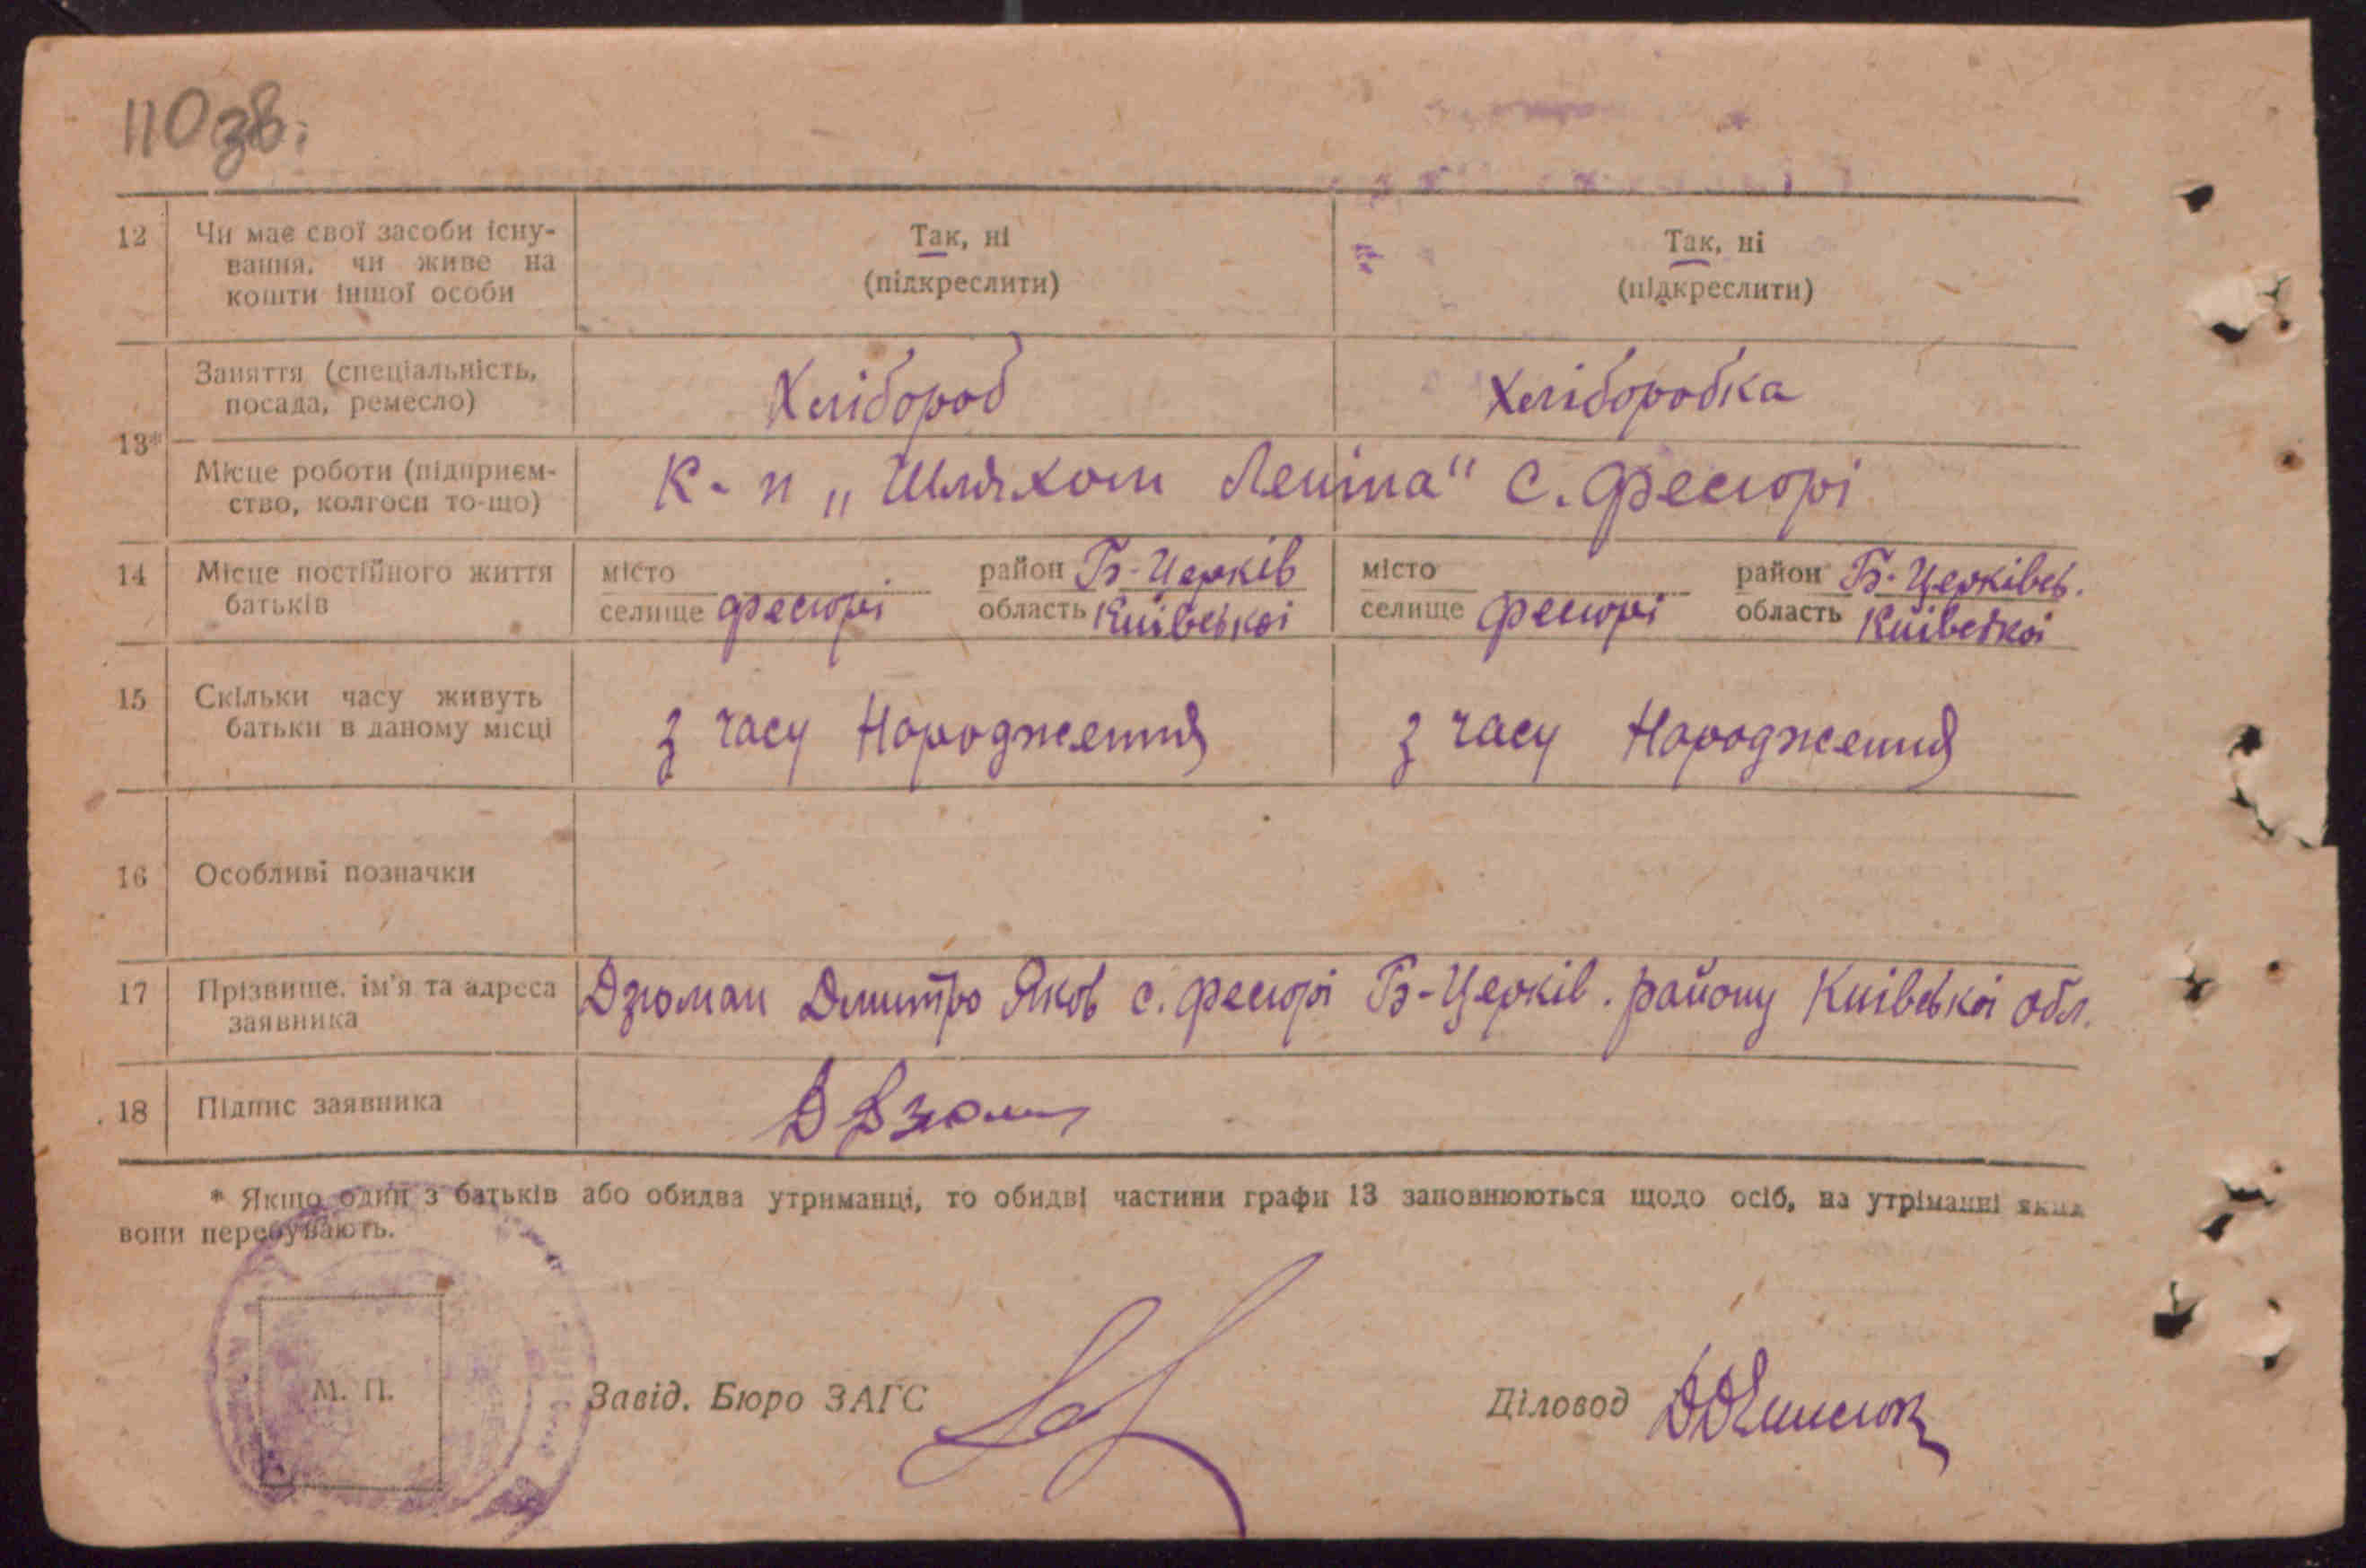 110 зв.
12 Чи має свої засоби існу-
вання, чи живе на
кошти іншої особи
Так, ні
(підкреслити)
Так, ні
(підкреслити)
13*
Заняття (спеціальність,
посада, ремесло)
Хлібороб
Хліборобка
Місце роботи (підприєм-
ство, колгосп то-що)
К-п „Шляхом Леніна" с. Фесюрі
14 Місце постійного життя
батьків
місто
селище Фесюрі
район Б-Церків
область Київської
місто
селище Фесюрі
район Б-Церківсь.
область Київської
15 Скільки часу живуть
батьки в даному місці
З часу Народження
З часу Народження
16 Особливі позначки
17 Прізвище, ім'я та адреса
заявника
Дзюман Дмитро Яков с. Фесюрі Б-Церків. району Київської обл.
18 Підпис заявника
Д Дзюман
* Якщо один з батьків або обидва утриманці, то обидві частини графи 13 заповнюються щодо осіб, на утріманні яких
вони перебувають.
М. П.
Завід. Бюро ЗАГС
Діловод